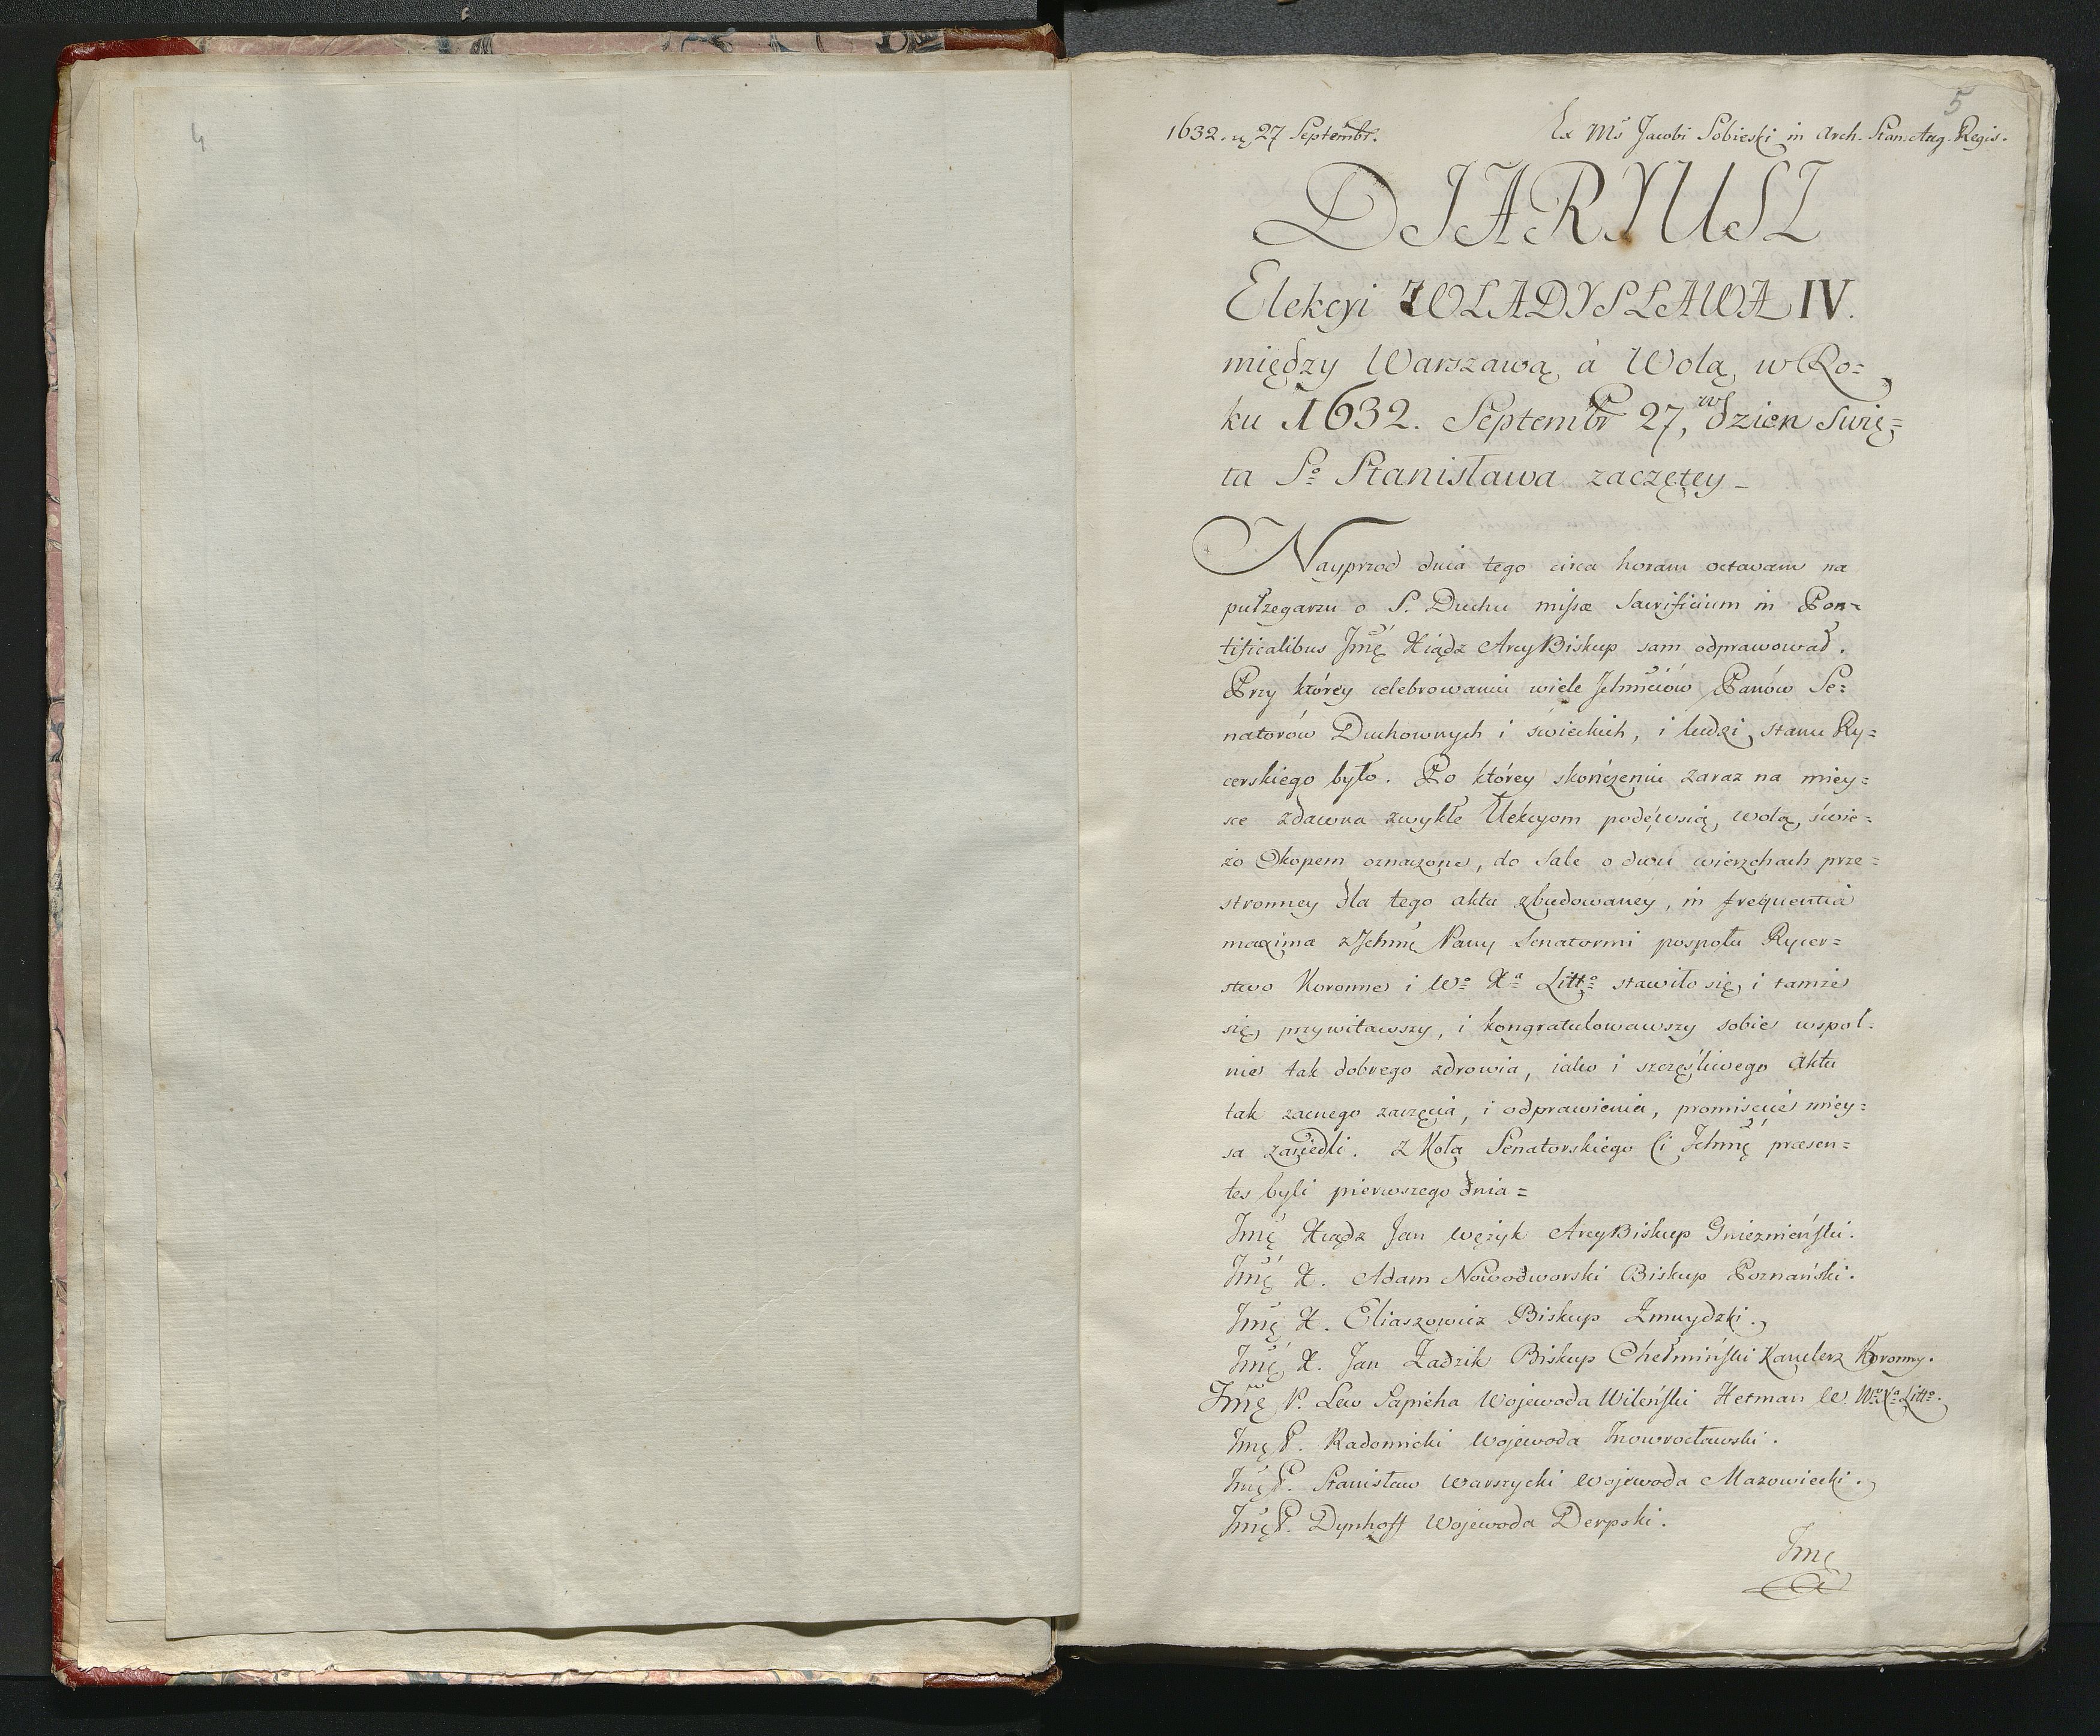 4
5
1632. 27 Septembr. Ex Ms Jacobi Sobieski in Arch. Stan. Aug. Regis.
DIARYUSZ
Elekcyi WLADYSLAWA IV.
między Warszawą à Wolą w Ro=
ku 1632. Septembr 27, w dzien Swię=
ta So Stanisława zaczętey_
Nayprzod dnia tego circa horam octavam na
pułzegarzu o S. Duchu missæ Sacrificium in Pon=
tificalibus Jmę Xiądz ArcyBiskup sam odprawował.
Przy którey celebrowaniu wiele Jchmściów Panów Se=
natorów Duchownych i świeckich, i ludzi stanu Ry=
cerskiego było. Po którey skończeniu zaraz na miey=
sce zdawna zwykłe Elekcyom pode wsią wolą, świe=
żo Okopem oznaczone, do Sale o dwu wierzchach prze=
stronney dla tego aktu zbudowaney, in frequentia
maxima z Jchmę Pany Senatormi pospołu Rycer=
stwo Koronne i Wo Xa Litto stawiło się, i tamże
się przywitawszy, i kongratulowawszy sobie wspol=
nie tak dobrego zdrowia, iako i szczęśliwego aktu
tak zacnego zaczęcia, i odprawienia, promiscue miey=
sca zasiedli. Z Koła Senatorskiego Ci Jchmę præsen=
tes byli pierwszego dnia=
Jmę Xiądz Jan Wężyk ArcyBiskup Gnieznieński.
Jmę X. Adam Nowodworski Biskup Poznański.
Jmę X. Eliaszowicz Biskup Zmuydzki.
Jmę X. Jan Zadzik Biskup Chełmiński Kanclerz Koronny.
Jmę P. Lew Sapieha Wojewoda Wileński Hetman W. Wo Xa Litto.
Jmę P. Radomicki Wojewoda Inowrocławski.
Jmę P. Stanisław Warszycki Wojewoda Mazowiecki.
Jmę P. Dynhoff Wojewoda Derpski.
Jmę